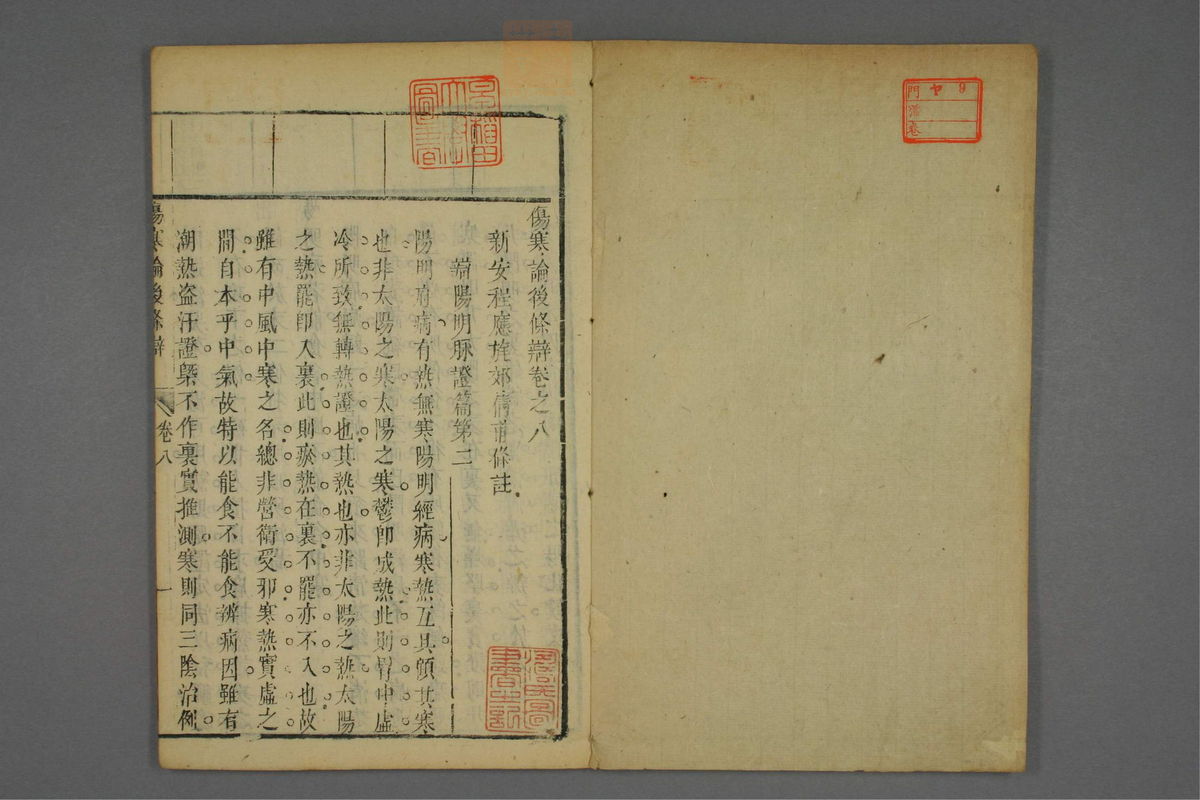 門 ヤ 9
號
卷
傷寒論後條辯卷之八
新安程應旄郊倩甫條註
辯陽明脉證篇第二
陽明府病有熱無寒陽明經病寒熱互具顧其寒
也非太陽之寒太陽之寒鬱卽成熱此則胃中虛
冷所致無轉熱證也其熱也亦非太陽之熱太陽
之熱罷卽入裏此則瘀熱在裏不罷亦不入也故
雖有中風中寒之名總非營衛受邪寒熱實虛之
間自本乎中氣故特以能食不能食辨病因雖有
潮熱盗汗證槩不作裏實推測寒則同三陰治例
傷寒論後條辯
卷八
一
早稻田
大學
圖書